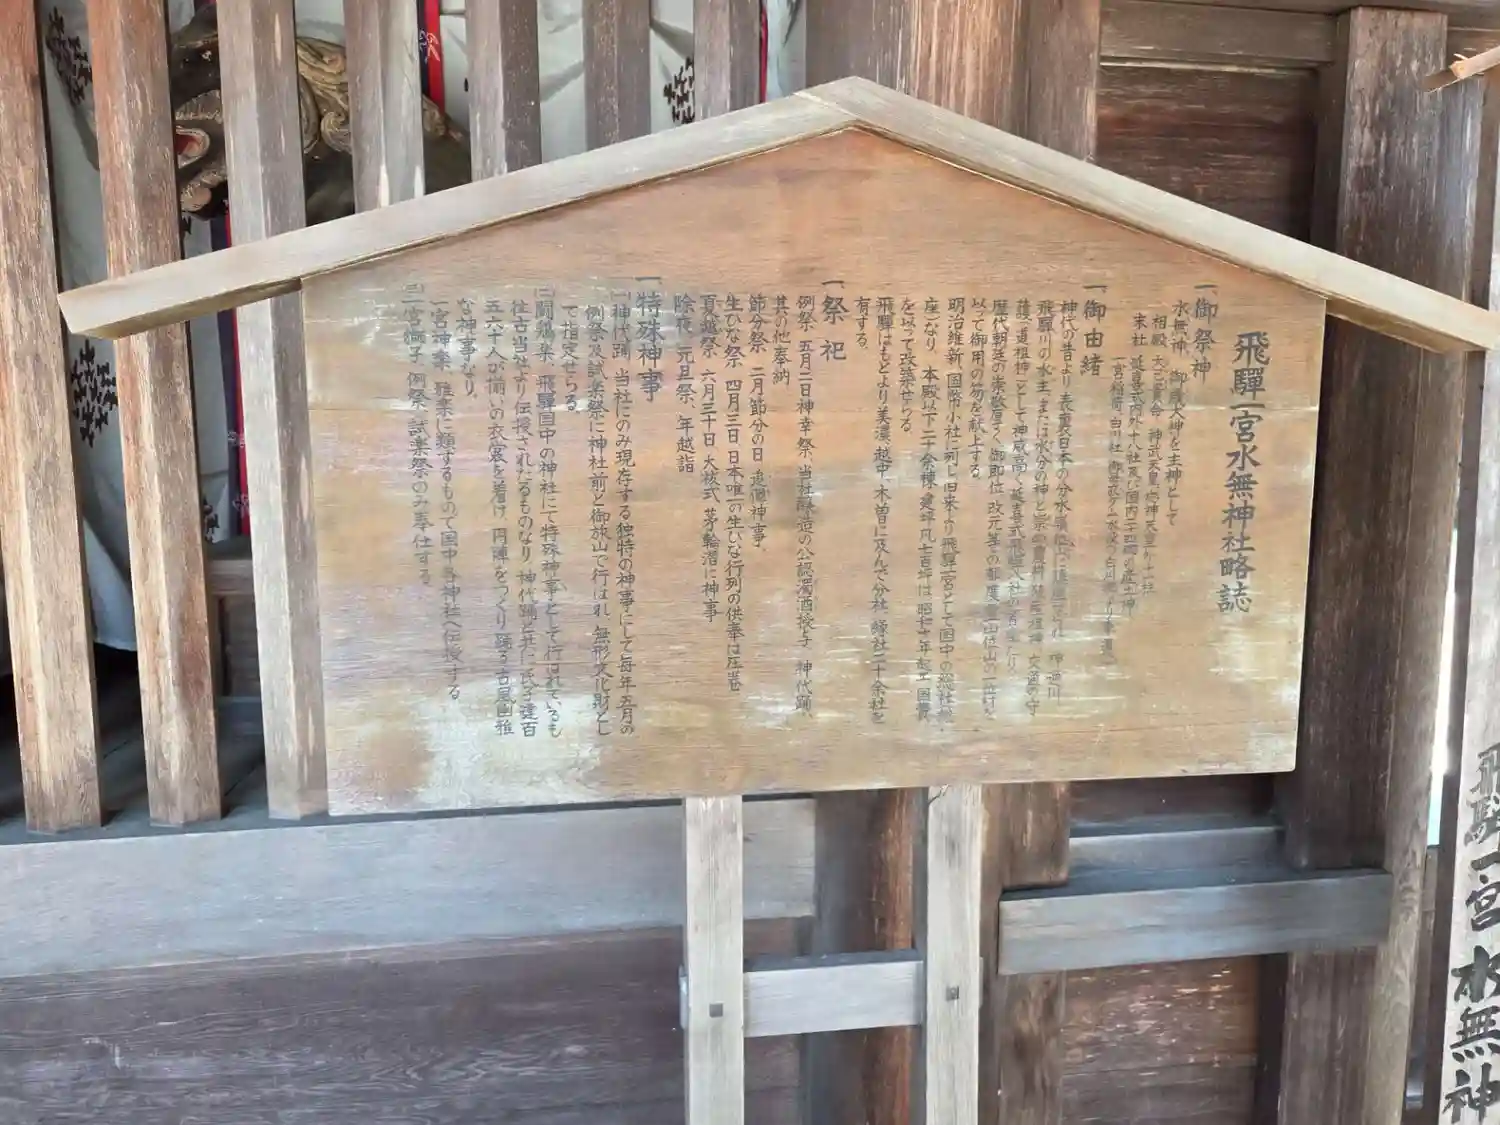 飛驒一宮水無神社略誌
一、御祭神
水無神 御歳大神を主神として
相殿 大己貴命 神武天皇 応神天皇 外十一柱
末社 延喜式内外十八社及び国内二十四郷の産土神
一宮稲荷 白川社
一、御由緒
神代の昔より表裏日本の分水嶺位山に鎮座せられ 神通川
飛驒川の水主、または水分の神と崇め
護、道祖神として神威高く延喜式飛驒八社の首座たり。
歴代朝廷の崇敬厚く御即位、改元等の都度霊山位山の一位材を
以って御用の笏を献上する。
明治維新、国幣小社に列し旧来より飛驒一宮として国中の総社
座となり、本殿以下二十余棟、建坪凡七百坪は昭和十年起工、国費
を以って改築せらる。
飛驒はもとより美濃、越中、木曽に及んで分社、縁社二十余社を
有する。
一、祭祀
例祭、五月二日神幸祭、当社醸造の公認濁酒授与、神代踊、
其の他奉納
節分祭、二月節分の日 追儺神事、
生びな祭 四月三日、日本唯一の生びな行列の供奉は圧巻
夏越祭、六月三十日、大祓式、茅輪潜に神事
除夜、元旦祭、年越詣
一、特殊神事
(一)神代踊、当社にのみ現存する独特の神事にして毎年五月の
例祭及試楽祭に神社前と御旅山で行はれ、無形文化財とし
て指定せらる。
(二)闘鶏楽、飛驒国中の神社にて特殊神事として行はれているも
往古当社より伝授されたるものなり、神代踊と共に氏子達百
五六十人が揃いの衣裳を着け、円陣をつくり踊る古風優雅
な神事なり。
一宮神楽、雅楽に類するもので国中各神社へ伝授する
(三)一宮獅子、例祭、試楽祭のみ奉仕する。
飛驒一宮水無神